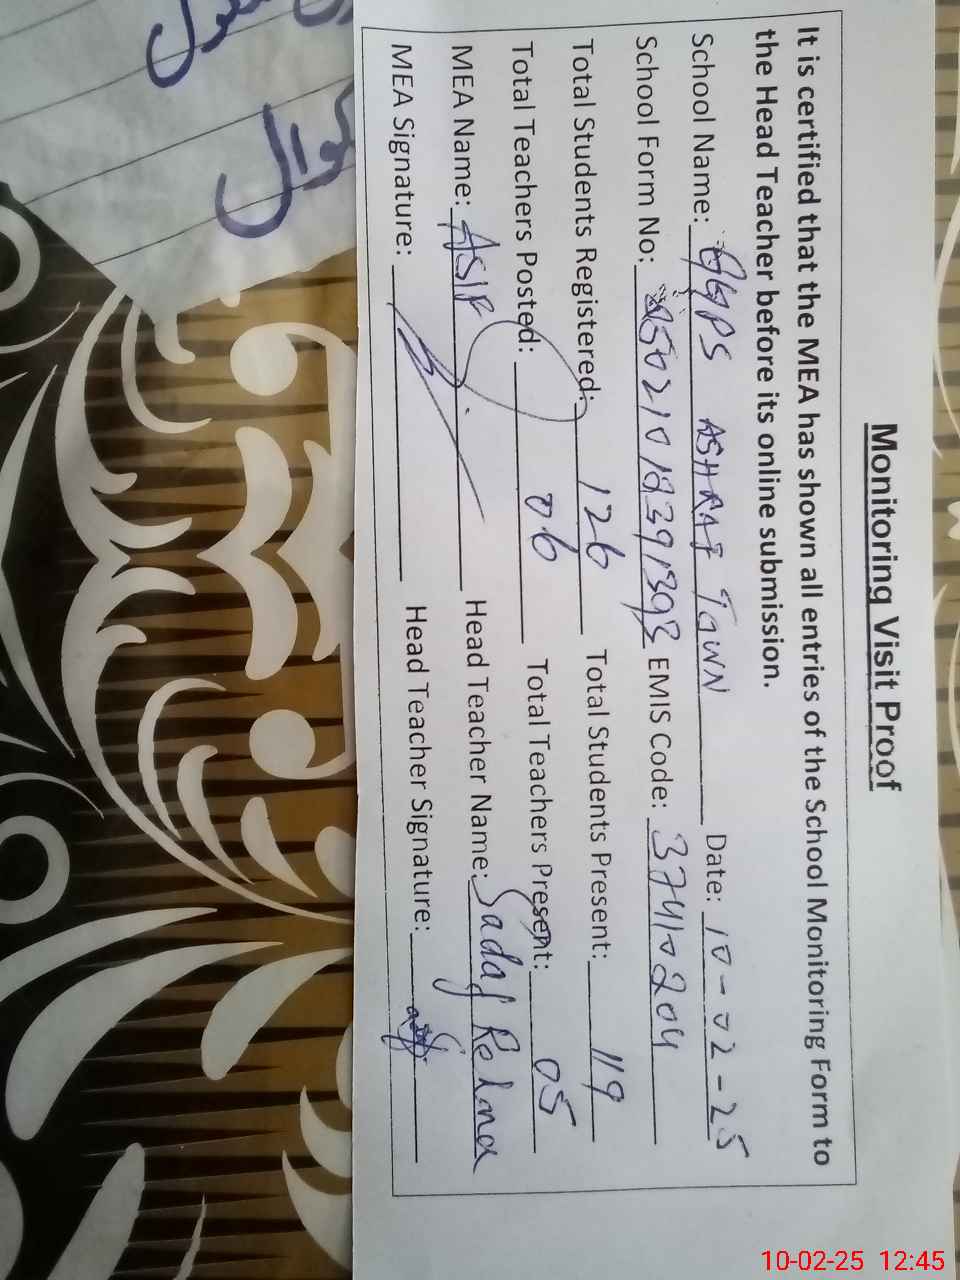 Monitoring Visit Proof
It is certified that the MEA has shown all entries of the School Monitoring Form to
the Head Teacher before its online submission.
School Name: GGPS ASHRAF TOWN Date: 10-02-25
School Form No: EMIS Code: 37410204
Total Students Registered: 126 Total Students Present: 119
Total Teachers Posted: 06 Total Teachers Present: 05
MEA Name: ASIF Head Teacher Name: Sadaf Rehna
MEA Signature: Head Teacher Signature:
10-02-25 12:45